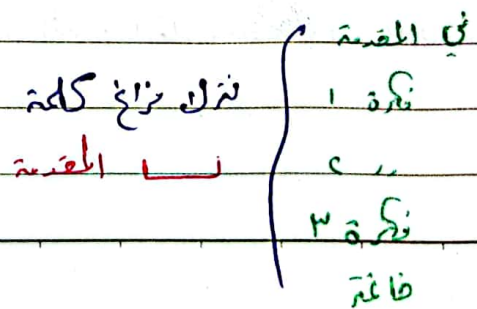 في المقدمة
فكرة ١
〃 ٢
فكرة ٣
خاتمة
نترك فراغ كلمة
المقدمة